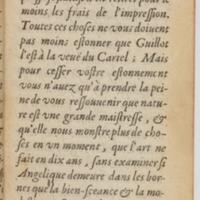 moins les frais de l'impression.
Toutes ces choses ne vous doiuent
pas moins estonner que Guillot
l'est à la veuë du Cartel ; Mais
pour cesser vostre estonnement
vous n'auez qu'à prendre la pei-
ne de vous ressouuenir que natu-
re est vne grande maistresse, &
qu'elle nous monstre plus de cho-
ses en vn moment, que l'art ne
fait en dix ans, sans examiner si
Angelique demeure dans les bor-
nes que la bien-sceance & la mo-